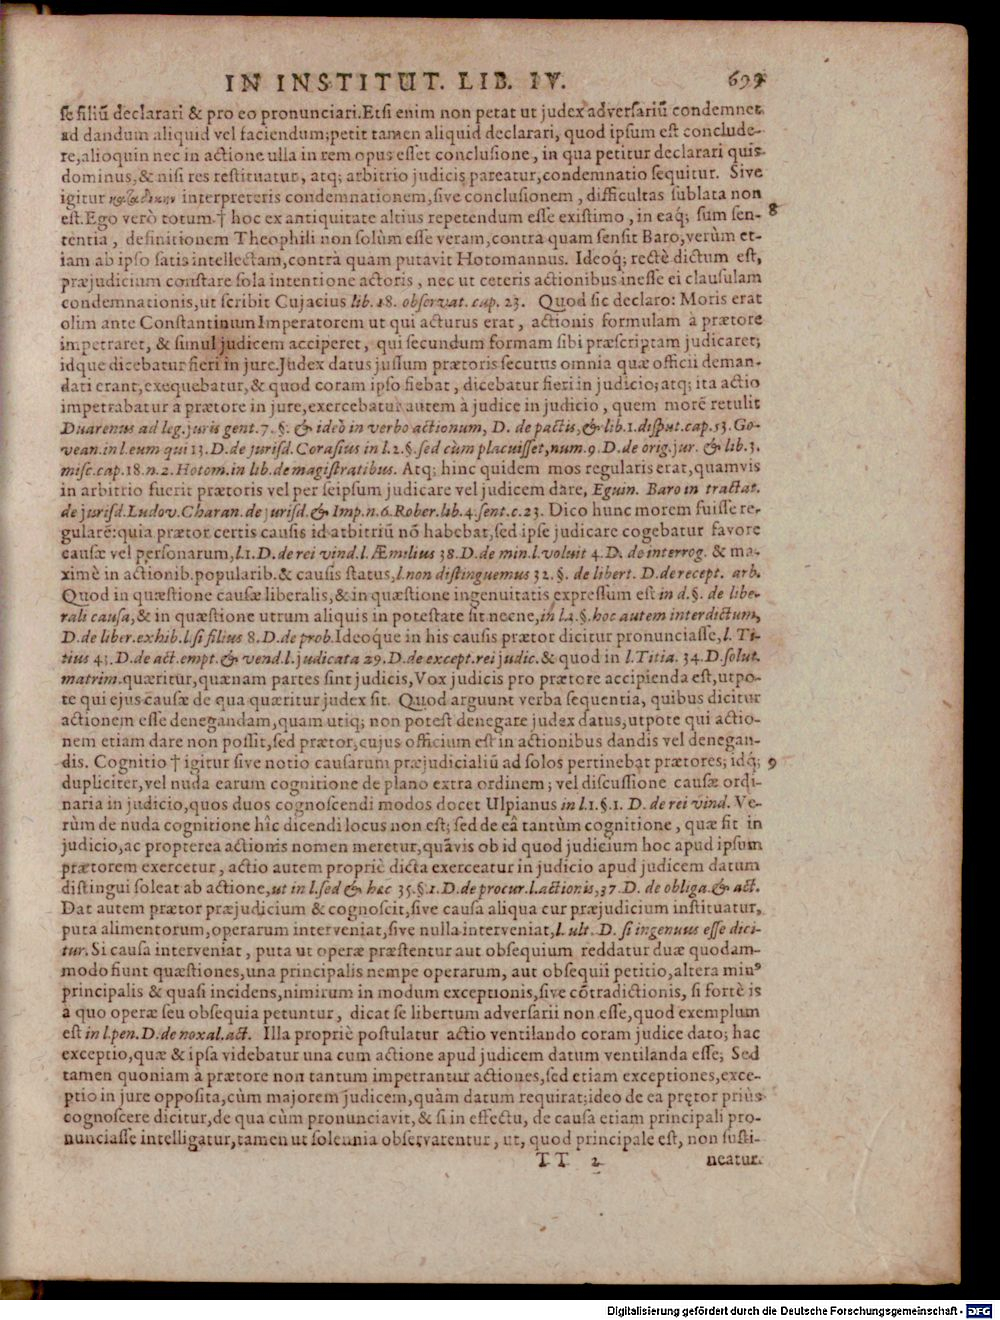 IN INSTITUT. LIB. IV. 699
se filiū declarari & pro eo pronunciari. Etsi enim non petat ut judex adversariū condemnet
ad dandum aliquid vel faciendum; petit tamen aliquid declarari, quod ipsum est conclude-
re, alioquin nec in actione ulla in rem opus esset conclusione, in qua petitur declarari quis
dominus, & nisi res restituatur, atq; arbitrio judicis pareatur, condemnatio sequitur. Sive
igitur interpreteris condemnationem, sive conclusionem, difficultas sublata non
est. Ego verò totum † hoc ex antiquitate altius repetendum esse existimo, in eaq́; sum sen- 8
tentia, definitionem Theophili non solùm esse veram, contra quam sensit Baro, verùm et-
iam ab ipso satis intellectam, contrà quam putavit Hotomannus. Ideoq; rectè dictum est,
præjudicium constare sola intentione actoris, nec ut ceteris actionibus inesse ei clausulam
condemnationis, ut scribit Cujacius lib. 18. observat. cap. 23. Quod sic declaro: Moris erat
olim ante Constantinum Imperatorem ut qui acturus erat, actionis formulam à prætore
impetraret, & simul judicem acciperet, qui secundum formam sibi præscriptam judicaret;
idque dicebatur fieri in jure. Judex datus jussum prætoris secutus omnia quæ officii deman-
dati erant, exequebatur, & quod coram ipso fiebat, dicebatur fieri in judicio; atq; ita actio
impetrabatur à prætore in jure, exercebatur autem à judice in judicio, quem morē retulit
Duarenus ad leg. juris gent. 7. §. & ideò in verbo actionum, D. de pactis, & lib. 1. disput. cap. 53. Go-
vean. in l. eum qui 13. D. de jurisd. Corasius in l. 2. §. sed cùm placuisset, num. 9. D. de orig. jur. & lib. 3.
misc. cap. 18. n. 2. Hotom. in lib. de magistratibus. Atq; hinc quidem mos regularis erat, quamvis
in arbitrio fuerit prætoris vel per seipsum judicare vel judicem dare, Eguin. Baro in tractat.
de jurisd. Ludov. Charan. de jurisd. & Imp. n. 6. Rober. lib. 4. sent. c. 23. Dico hunc morem fuisse re-
gularē: quia prætor certis causis id arbitriū nō habebat, sed ipse judicare cogebatur favore
causæ vel personarum, l. 1. D. de rei vind. l. Æmilius 38. D. de min. l. voluit 4. D. de interrog. & ma-
ximè in actionib. popularib. & causis status, l. non distinguemus 32. §. de libert. D. de recept. arb.
Quod in quæstione causæ liberalis, & in quæstione ingenuitatis expressum est in d. §. de libe-
rali causa, & in quæstione utrum aliquis in potestate sit necne, in l. 1. §. hoc autem interdictum,
D. de liber. exhib. l. si filius 8. D. de prob. Ideoque in his causis prætor dicitur pronunciasse, l. Ti-
tius 43. D. de act. empt. & vend. l. judicata 29. D. de except. rei judic. & quod in l. Titia. 34. D. solut.
matrim. quæritur, quænam partes sint judicis, Vox judicis pro prætore accipienda est, utpo-
te qui ejus causæ de qua quæritur judex sit. Quod arguunt verba sequentia, quibus dicitur
actionem esse denegandam, quam utiq; non potest denegare judex datus, utpote qui actio-
nem etiam dare non possit, sed prætor, cujus officium est in actionibus dandis vel denegan-
dis. Cognitio † igitur sive notio causarum præjudicialiū ad solos pertinebat prætores; idq́; 9
dupliciter, vel nuda earum cognitione de plano extra ordinem; vel discussione causæ ordi-
naria in judicio, quos duos cognoscendi modos docet Ulpianus in l. 1. §. 1. D. de rei vind. Ve-
rùm de nuda cognitione hîc dicendi locus non est; sed de eâ tantùm cognitione, quæ fit in
judicio, ac propterea actionis nomen meretur, quāvis ob id quod judicium hoc apud ipsum
prætorem exercetur, actio autem propriè dicta exerceatur in judicio apud judicem datum
distingui soleat ab actione, ut in l. sed & hac 35. §. 1. D. de procur. l. actionis, 37. D. de obliga. & act.
Dat autem prætor præjudicium & cognoscit, sive causa aliqua cur præjudicium instituatur,
puta alimentorum, operarum interveniat, sive nulla interveniat, l. ult. D. si ingenuus esse dici-
tur. Si causa interveniat, puta ut operæ præstentur aut obsequium reddatur duæ quodam-
modo fiunt quæstiones, una principalis nempe operarum, aut obsequii petitio, altera minꝰ
principalis & quasi incidens, nimirum in modum exceptionis, sive cōtradictionis, si fortè is
à quo operæ seu obsequia petuntur, dicat se libertum adversarii non esse, quod exemplum
est in l. pen. D. de noxal. act. Illa propriè postulatur actio ventilando coram judice dato; hac
exceptio, quæ & ipsa videbatur una cum actione apud judicem datum ventilanda esse; Sed
tamen quoniam à prætore non tantum impetrantur actiones, sed etiam exceptiones, exce-
ptio in jure opposita, cùm majorem judicem, quàm datum requirat; ideo de ea prętor priùs
cognoscere dicitur, de qua cùm pronunciavit, & si in effectu, de causa etiam principali pro-
nunciasse intelligatur, tamen ut solennia observarentur, ut, quod principale est, non susti-
TT 2 neatur.
Digitalisierung gefördert durch die Deutsche Forschungsgemeinschaft - DFG